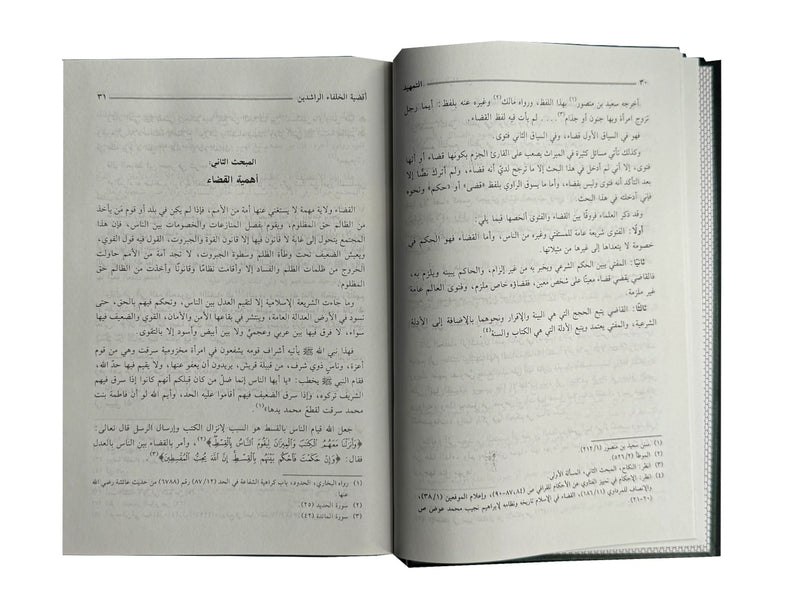 ٣٠
التمهيد
أخرجه سعيد بن منصور(١) بهذا اللفظ، ورواه مالك(٢) وغيره عنه بلفظ: أيما رجل
تزوج امرأة وبها جنون أو جذام(٣).... لم يأت فيه لفظ القضاء.
فهو في السياق الأول قضاء، وفي السياق الثاني فتوى.
وكذلك تأتي مسائل كثيرة في الميراث يصعب على القارئ الجزم بكونها قضاء أو أنها
فتوى، إلا أني لم أدخل في هذا البحث إلا ما ترجح لديّ أنه قضاء، ولم أترك نصًّا إلا
بعد التأكد أنه فتوى وليس بقضاء، وأما ما يسوق الراوي بلفظ «قضى» أو «حكم» ونحوه
فإني أدخلته في هذا البحث.
وقد ذكر العلماء فروقًا بين القضاء والفتوى ألخصها فيما يلي:
أولًا: الفتوى شريعة عامة للمستفتي وغيره من الناس، وأما القضاء فهو الحكم في
خصومة لا يتعداها إلى غيرها من مثيلاتها.
ثانيًا: المفتي يبين الحكم الشرعي ويخبر به من غير إلزام، والحاكم يبينه ويلزم به،
فالقاضي يقضي قضاء معينًا على شخص معين، فقضاؤه خاص ملزم، وفتوى العالم عامة
غير ملزمة.
ثالثًا: القاضي يتبع الحجج التي هي البينة والإقرار ونحوهما بالإضافة إلى الأدلة
الشرعية، والمفتي يعتمد ويتبع الأدلة التي هي الكتاب والسنة(٤).
(١) سنن سعيد بن منصور (٢١٢/١)
(٢) الموطأ (٥٢٦/٢)
(٣) انظر: النكاح، المبحث الثاني، المسألة الأولى
(٤) انظر: الإحكام في تمييز الفتاوى عن الأحكام للقرافي ص (٨٤،٨٧-٩٠)، وإعلام الموقعين (٣٨/١)،
والإنصاف للمرداوي (١٨٦/١١)، القضاء في الإسلام تاريخه ونظامه لإبراهيم نجيب محمد عوض ص
(٢٠-٢١)
أقضية الخلفاء الراشدين
٣١
المبحث الثاني:
أهمية القضاء
القضاء ولاية مهمة لا يستغني عنها أمة من الأمم، فإذا لم يكن في بلد أو قوم مَن يأخذ
من الظالم حق المظلوم، ويقوم بفصل المنازعات والخصومات بين الناس، فإن هذا
المجتمع يتحول إلى غابة لا قانون فيها إلا قانون القوة والجبروت، القول فيه قول القوي،
ويعيش الضعيف تحت وطأة الظلم وسطوة الجبروت، لا نجد أمة من الأمم حاولت
الخروج من ظلمات الظلم والفساد إلا وأقامت نظامًا وقانونًا وأخذت من الظالم حق
المظلوم.
وما جاءت الشريعة الإسلامية إلا لتقيم العدل بين الناس، وتحكم فيهم بالحق، حتى
تسود في الأرض العدالة العامة، وينتشر في بقاعها الأمن والأمان، القوي والضعيف فيها
سواء، لا فرق فيها بين عربي وعجميٍّ ولا بين أبيض وأسود إلا بالتقوى.
فهذا نبي الله ﷺ يأتيه أشراف قومه يشفعون في امرأة مخزومية سرقت وهي من قوم
أعزة، وناسٍ ذوي شرف، من قبيلة قريش، يريدون أن يعفو عنها، ولا يقيم فيها حدّ الله،
فقام النبي ﷺ يخطب: «يا أيها الناس إنما ضلّ من كان قبلكم أنهم كانوا إذا سرق فيهم
الشريف تركوه، وإذا سرق الضعيف فيهم أقاموا عليه الحد، وأيم الله لو أن فاطمة بنت
محمد سرقت لقطعَ محمد يدها»(١).
جعل الله قيام الناس بالقسط هو السبب لإنزال الكتب وإرسال الرسل قال تعالى:
﴿وَأَنزَلْنَا مَعَهُمُ الْكِتَابَ وَالْمِيزَانَ لِيَقُومَ النَّاسُ بِالْقِسْطِ﴾(٢)، وأمر بالقضاء بين الناس بالعدل
فقال: ﴿وَإِنْ حَكَمْتَ فَاحْكُم بَيْنَهُم بِالْقِسْطِ إِنَّ اللَّهَ يُحِبُّ الْمُقْسِطِينَ﴾(٣).
(١) رواه البخاري، الحدود، باب كراهية الشفاعة في الحد (٨٧/١٢) رقم (٦٧٨٨) من حديث عائشة رضي الله
عنها.
(٢) سورة الحديد (٢٥)
(٣) سورة المائدة (٤٢)